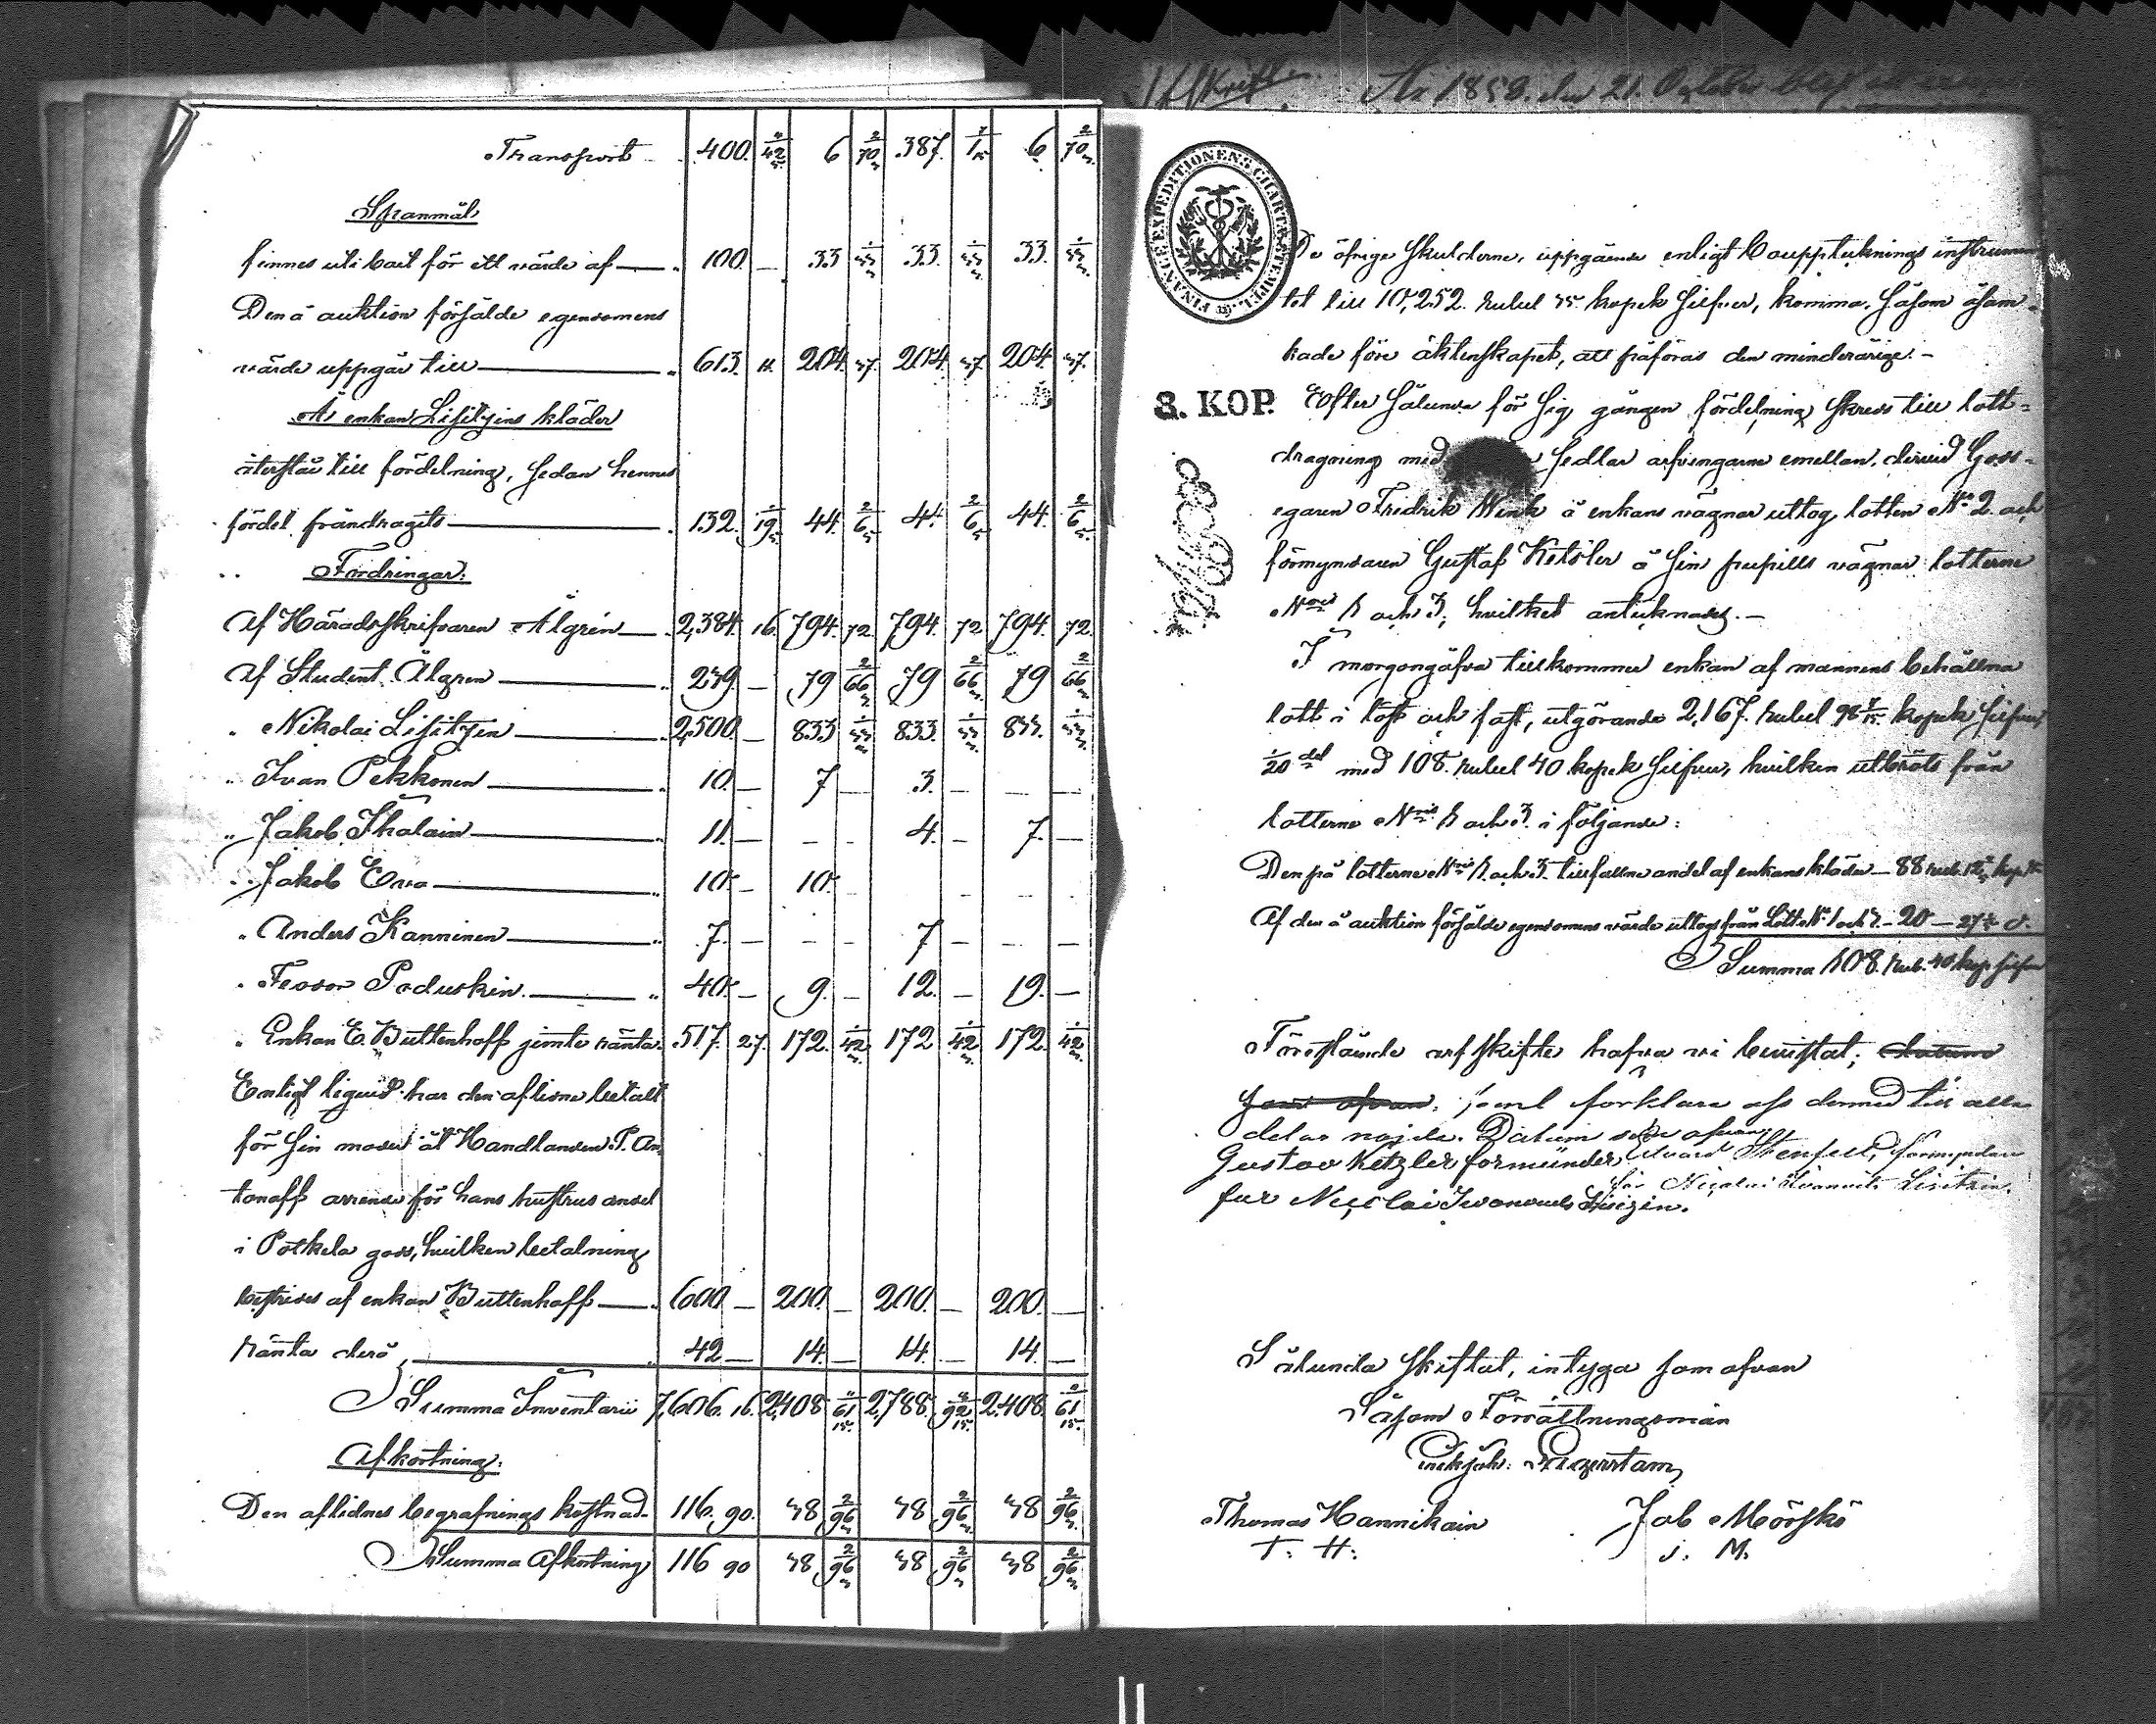 Transport 400. 6 387. 6
Spanmål
finnes uti boet för ett värde af 100. — 33 33. 33
Den å auktion försålde egendomens
värde uppgår till 613. 11. 204. 37. 204. 37 204. 37.
Af enkan Lisitzins kläder
återstår till fördelning, sedan hennes
fördel fråndragits 132. 19 44. 2/6 44. 2/6 44. 2/6
Fordringar:
Af Häradsskrifvaren Ålgrén 2,384. 16. 794. 72. 794. 72 794. 72.
Af Student Ålgren 239 — 79 2/66 79 2/66 79 2/66
„ Nikolai Lisitzin 2,500. — 833 833. 833.
„ Ivan Pekkonen 10. — 7 — 3. — — —
„ Jakob Ihalain 11. — — - 4. — 7. —
„ Jakob Orva 10. — 10. — - - - -
„ Anders Kanninen 7. — — - 7 — — —
„ Feodor Poduskin 40. — 9. — 12. — 19. —
„ Enkan E. Buttenhoff jemte ränta 517. 27. 172. 42 172 42 172. 42
Enligt liqvid har den aflidne betalt
för sin moder åt Handlanden P. An
tonoff arrende för hans hustrus andel
i Potkela gods, hvilken betalning
bestrides af enkan Buttenhoff 600. — 200. — 200. — 200. —
ränta derå 42 — 14. — 14. — 14. —
Summa Inventarii 7,606. 16. 2,408 61/15 2,788. 92/15 2,408. 61/15
Afkortning:
Den aflidnes begrafnings kostnad 116. 90. 38 2/96 38 2/96 38 2/96
Summa Afkortning 116 90 38 2/96 38 2/96 38 2/96
Afskrift År 1852. den 21. October
FINANCE EXPEDITIONENS CHARTÆ STEMPEL
De öfrige skulderne, uppgående enligt bouppteknings instrumen
tet till 10,252. rubel 35. kopek silfver, komma, såsom åsam-
kade före äktenskapet, att påföras den minderårige. —
3. KOP. Efter sålunda för sig gången fördelning skreds till lott=
dragning med sedlar arfvingarne emellan, dervid Gods-
egaren Fredrik Wink å enkans vägnar uttog lotten No 2. och
förmyndaren Gustaf Ketsler å sin pupills vägnar lotterne
Nris 1 och 3, hvilket antecknades. —
I morgongåfva tillkommer enkan af mannens behållna
lott i löst och fast, utgörande 2,167. rubel 98 kopek silfver,
1/20 del med 108. rubel 40 kopek silfver, hvilken utbröts från
lotterne Nris 1 och 3. i följande:
Den på lotterne Nris 1. och 3. tillfallne andel af enkans kläder — 88 rub. 12 kop.
Af den å auktion försålde egendomens värde uttogs från Lott No 1 och 3. — 20 — 27 d:o
Summa 108. rub. 40 kop silfver
Förestående arfskifte hafva vi bevistat, datum
som ofvan, samt förklara oss dermed till alla
delar nöjde. Datum som ofvan.
Gustav Ketzler formünder, Edvard Stenfelt, förmyndare
für Nicolai Iwanowits Lisizin. för Nicolai Ivanovits Lisitzin.
Sålunda skiftat, intyga som ofvan
Såsom Förrättningsmän
Thomas Hannikain Job Mörskö
T. H: J. M.